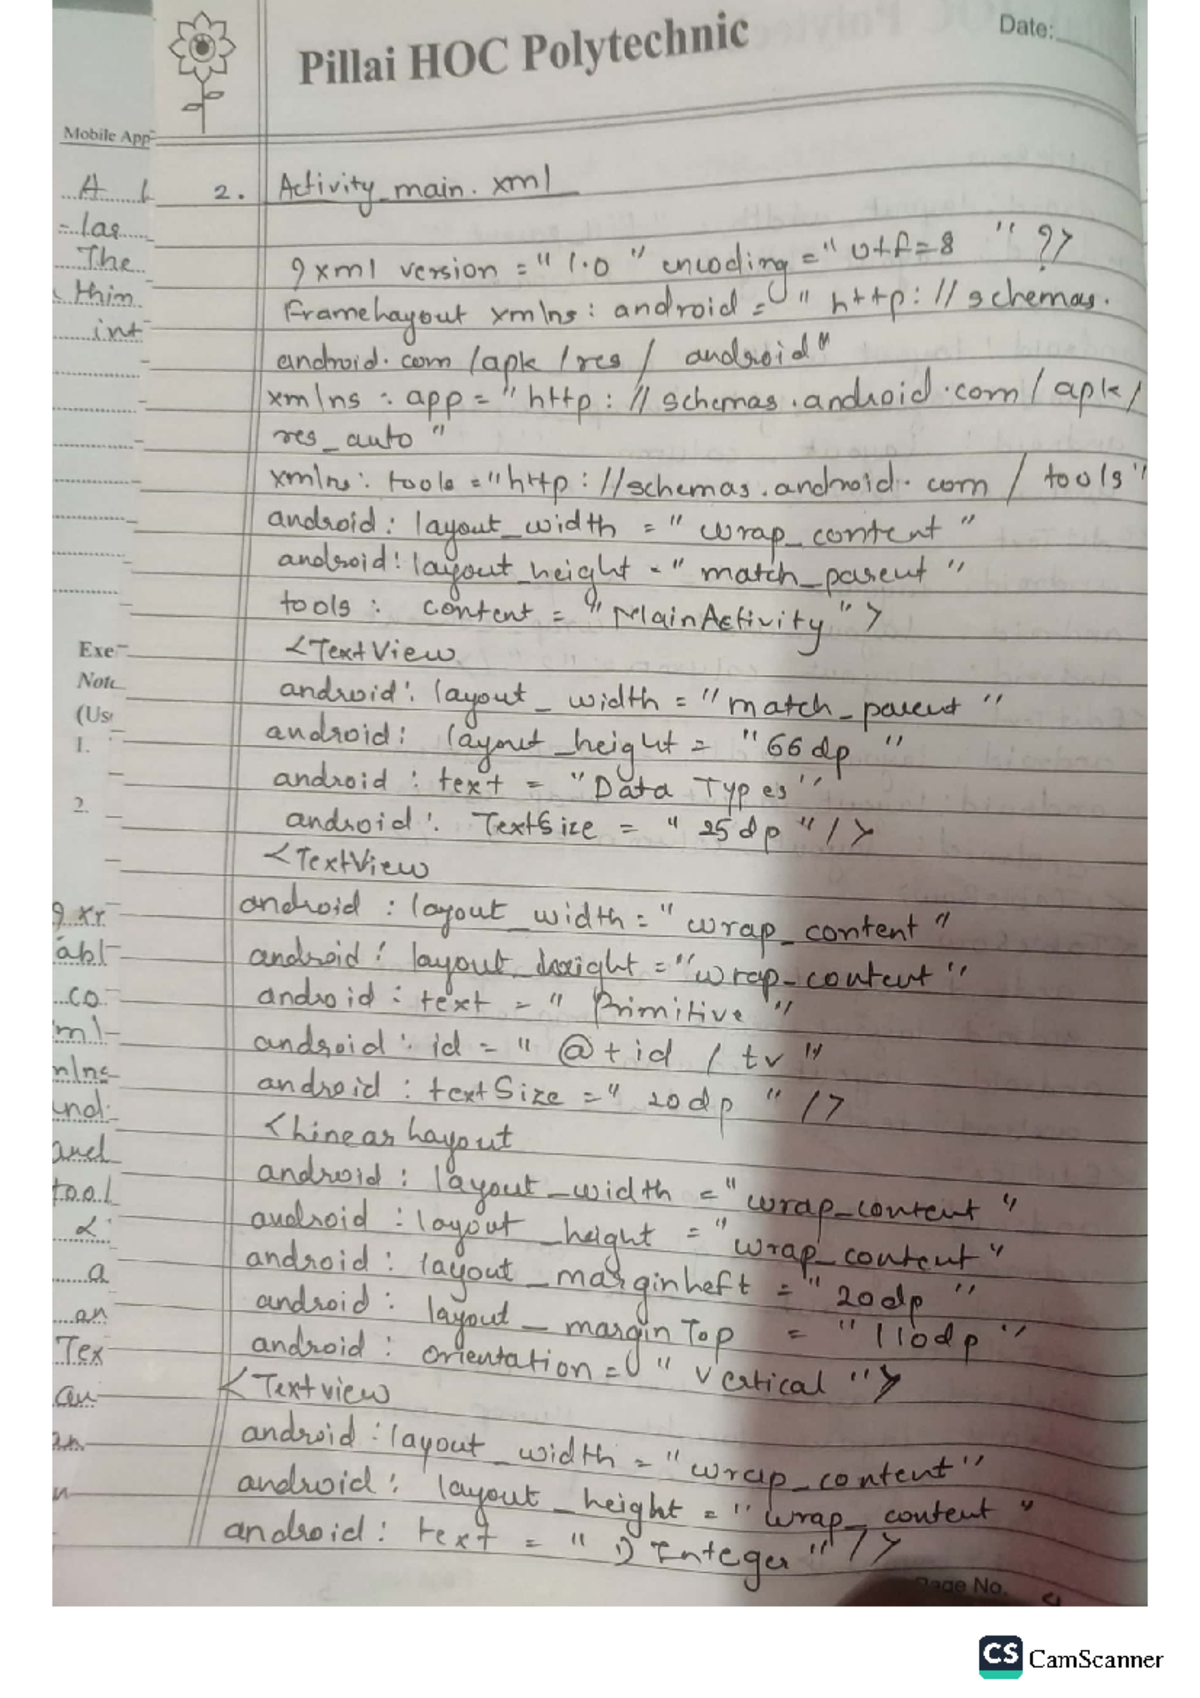 Pillai HOC Polytechnic
Date:
Mobile App
A
las
The
thin
int
Exe
Note
(Us
1.
2.
2. Activity_main.xml
?xml version = "1.0" encoding = "utf=8" ?>
FrameLayout xmlns: android = "http://schemas.
android.com/apk/res/android"
xmlns : app = "http://schemas.android.com/apk/
res_auto"
xmlns: tools = "http://schemas.android.com/tools"
android: layout_width = "wrap_content"
android: layout_height = "match_parent"
tools: content = "MainActivity">
<TextView
android: layout_width = "match_parent"
android: layout_height = "66dp"
android: text = "Data Types"
android: TextSize = "25dp"/>
<TextView
android: layout_width = "wrap_content"
android: layout_height = "wrap_content"
android: text = "Primitive"
android: id = "@+id/tv"
android: textSize = "20dp"/>
<LinearLayout
android: layout_width = "wrap_content"
android: layout_height = "wrap_content"
android: layout_marginLeft = "20dp"
android: layout_marginTop = "110dp"
android: orientation = "vertical">
<Textview
android: layout_width = "wrap_content"
android: layout_height = "wrap_content"
android: text = "1) Integer"/>
Page No.
CS CamScanner